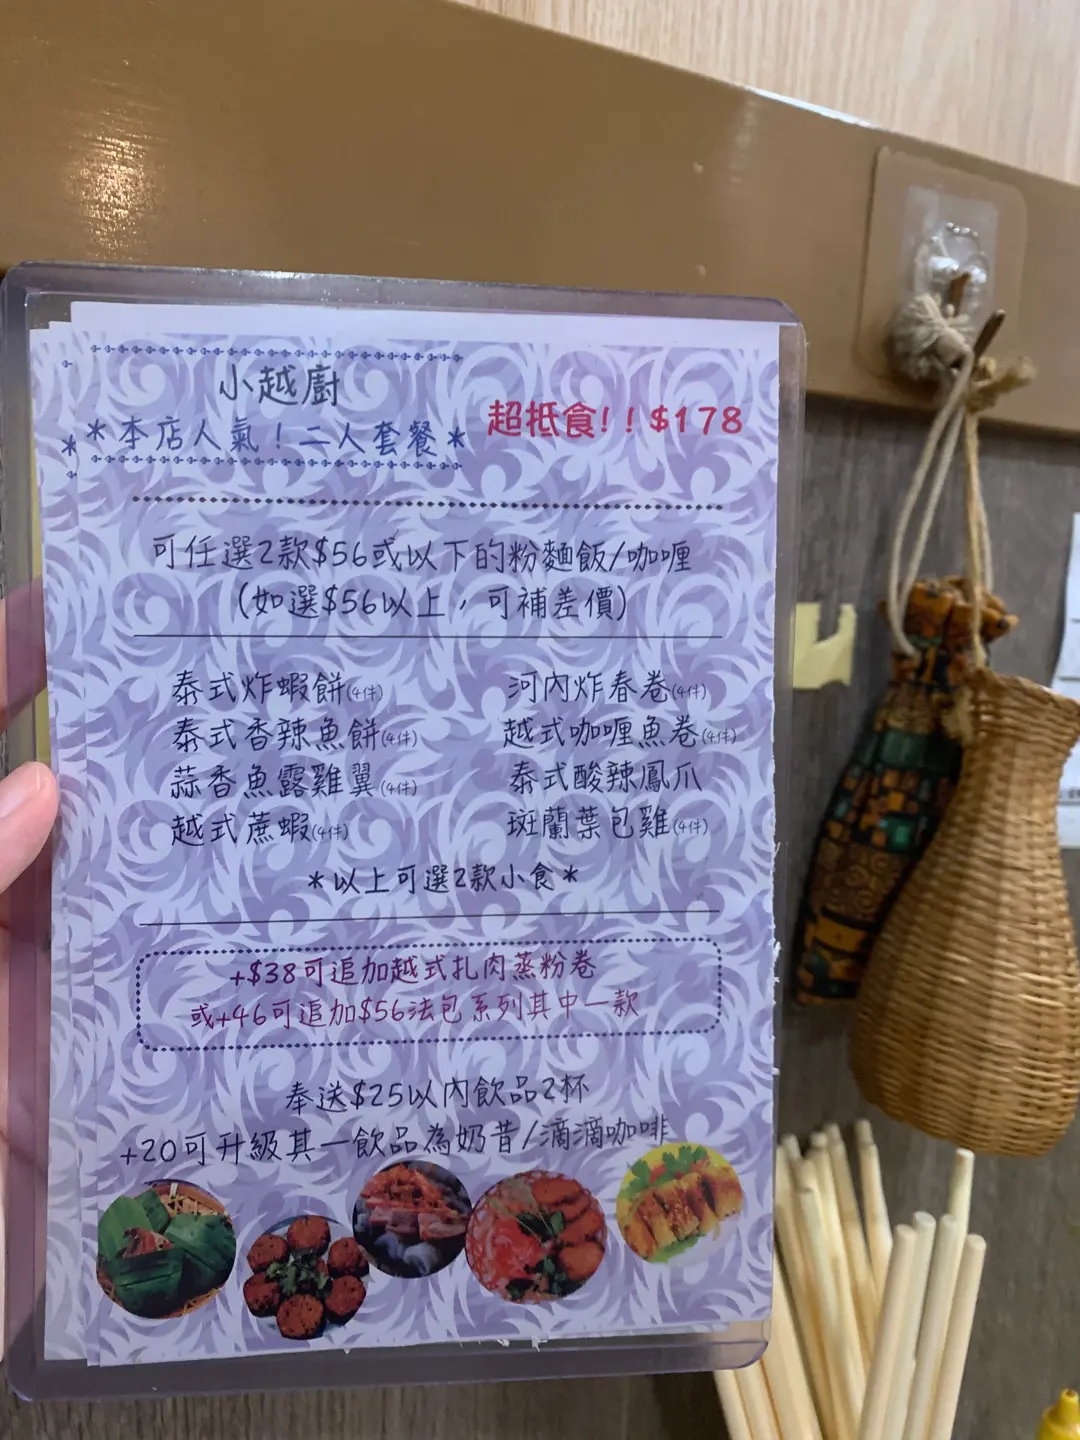 小越廚
*本店人氣！二人套餐*
超抵食!!$178
可任選2款$56或以下的粉麵飯/咖喱
(如選$56以上，可補差價)
泰式炸蝦餅(4件)
泰式香辣魚餅(4件)
蒜香魚露雞翼(4件)
越式蔗蝦(4件)
河內炸春卷(4件)
越式咖喱魚卷(4件)
泰式酸辣鳳爪
斑蘭葉包雞(4件)
*以上可選2款小食*
+$38可追加越式扎肉蒸粉卷
或+46可追加$56法包系列其中一款
奉送$25以內飲品2杯
+20可升級其一飲品為奶昔/滴滴咖啡